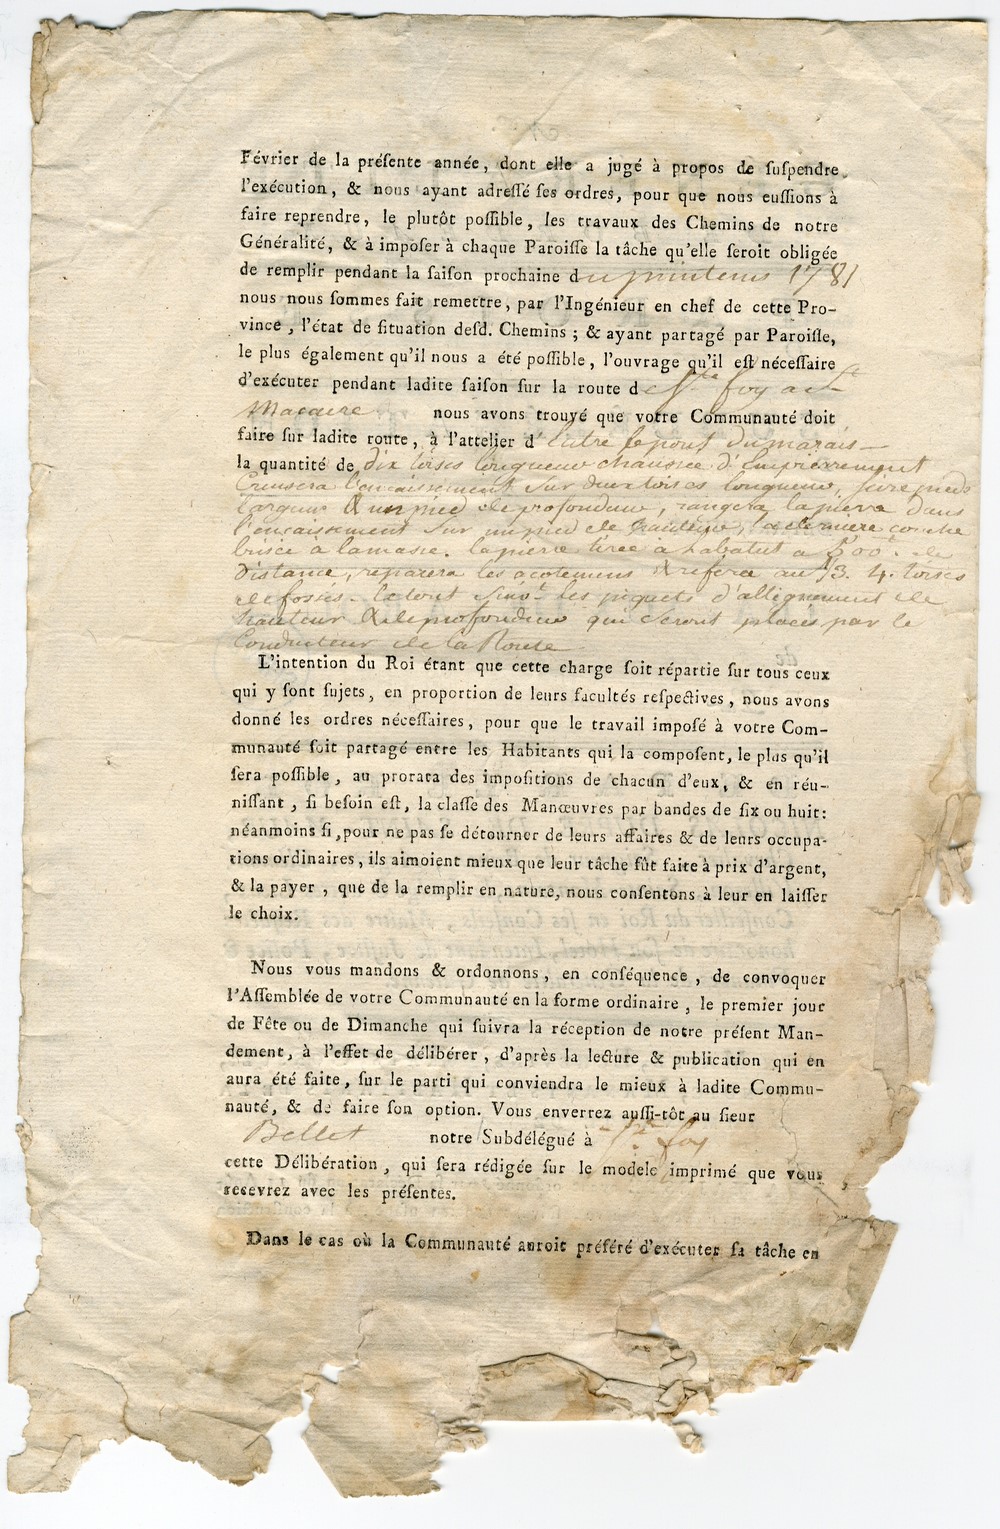 Février de la préſente année, dont elle a jugé à propos de ſuſpendre
l'exécution, & nous ayant adreſſé ſes ordres, pour que nous euſſions à
faire reprendre, le plutôt poſſible, les travaux des Chemins de notre
Généralité, & à impoſer à chaque Paroiſſe la tâche qu'elle ſeroit obligée
de remplir pendant la ſaiſon prochaine du printems 1781
nous nous ſommes fait remettre, par l'Ingénieur en chef de cette Pro-
vince, l'état de ſituation deſd. Chemins; & ayant partagé par Paroiſſe,
le plus également qu'il nous a été poſſible, l'ouvrage qu'il eſt néceſſaire
d'exécuter pendant ladite ſaiſon ſur la route de Ste foy a St
Macaire nous avons trouvé que votre Communauté doit
faire ſur ladite route, à l'attelier d'Entre le pont du marais
la quantité de dix toises longueur chaussée d'Empierrement
Creusera l'encaissement Sur dix toises longueur, seize pieds
largeur & un pied de profondeur, rangera la pierre dans
l'encaissement Sur un pied de hauteur, la derniere couche
brisée a la masse. la pierre tirée a Labatut a 500t. de
distance, reparera les acotemens & refera au 13. 4. toises
de fossés. le tout Suivt. les piquets d'allignement de
hauteur & de profondeur qui Seront placés par le
Conducteur de la Route
L'intention du Roi étant que cette charge ſoit répartie ſur tous ceux
qui y ſont ſujets, en proportion de leurs facultés reſpectives, nous avons
donné les ordres néceſſaires, pour que le travail impoſé à votre Com-
munauté ſoit partagé entre les Habitants qui la compoſent, le plus qu'il
ſera poſſible, au prorata des impoſitions de chacun d'eux, & en réu-
niſſant, ſi beſoin eſt, la claſſe des Manœuvres par bandes de ſix ou huit:
néanmoins ſi, pour ne pas ſe détourner de leurs affaires & de leurs occupa-
tions ordinaires, ils aimoient mieux que leur tâche fût faite à prix d'argent,
& la payer, que de la remplir en nature, nous conſentons à leur en laiſſer
le choix.
Nous vous mandons & ordonnons, en conſéquence, de convoquer
l'Aſſemblée de votre Communauté en la forme ordinaire, le premier jour
de Fête ou de Dimanche qui ſuivra la réception de notre préſent Man-
dement, à l'effet de délibérer, d'après la lecture & publication qui en
aura été faite, ſur le parti qui conviendra le mieux à ladite Commu-
nauté, & de faire ſon option. Vous enverrez auſſi-tôt au ſieur
Bellet notre Subdélégué à Ste foy
cette Délibération, qui ſera rédigée ſur le modele imprimé que vous
recevrez avec les préſentes.
Dans le cas où la Communauté auroit préféré d'exécuter ſa tâche en